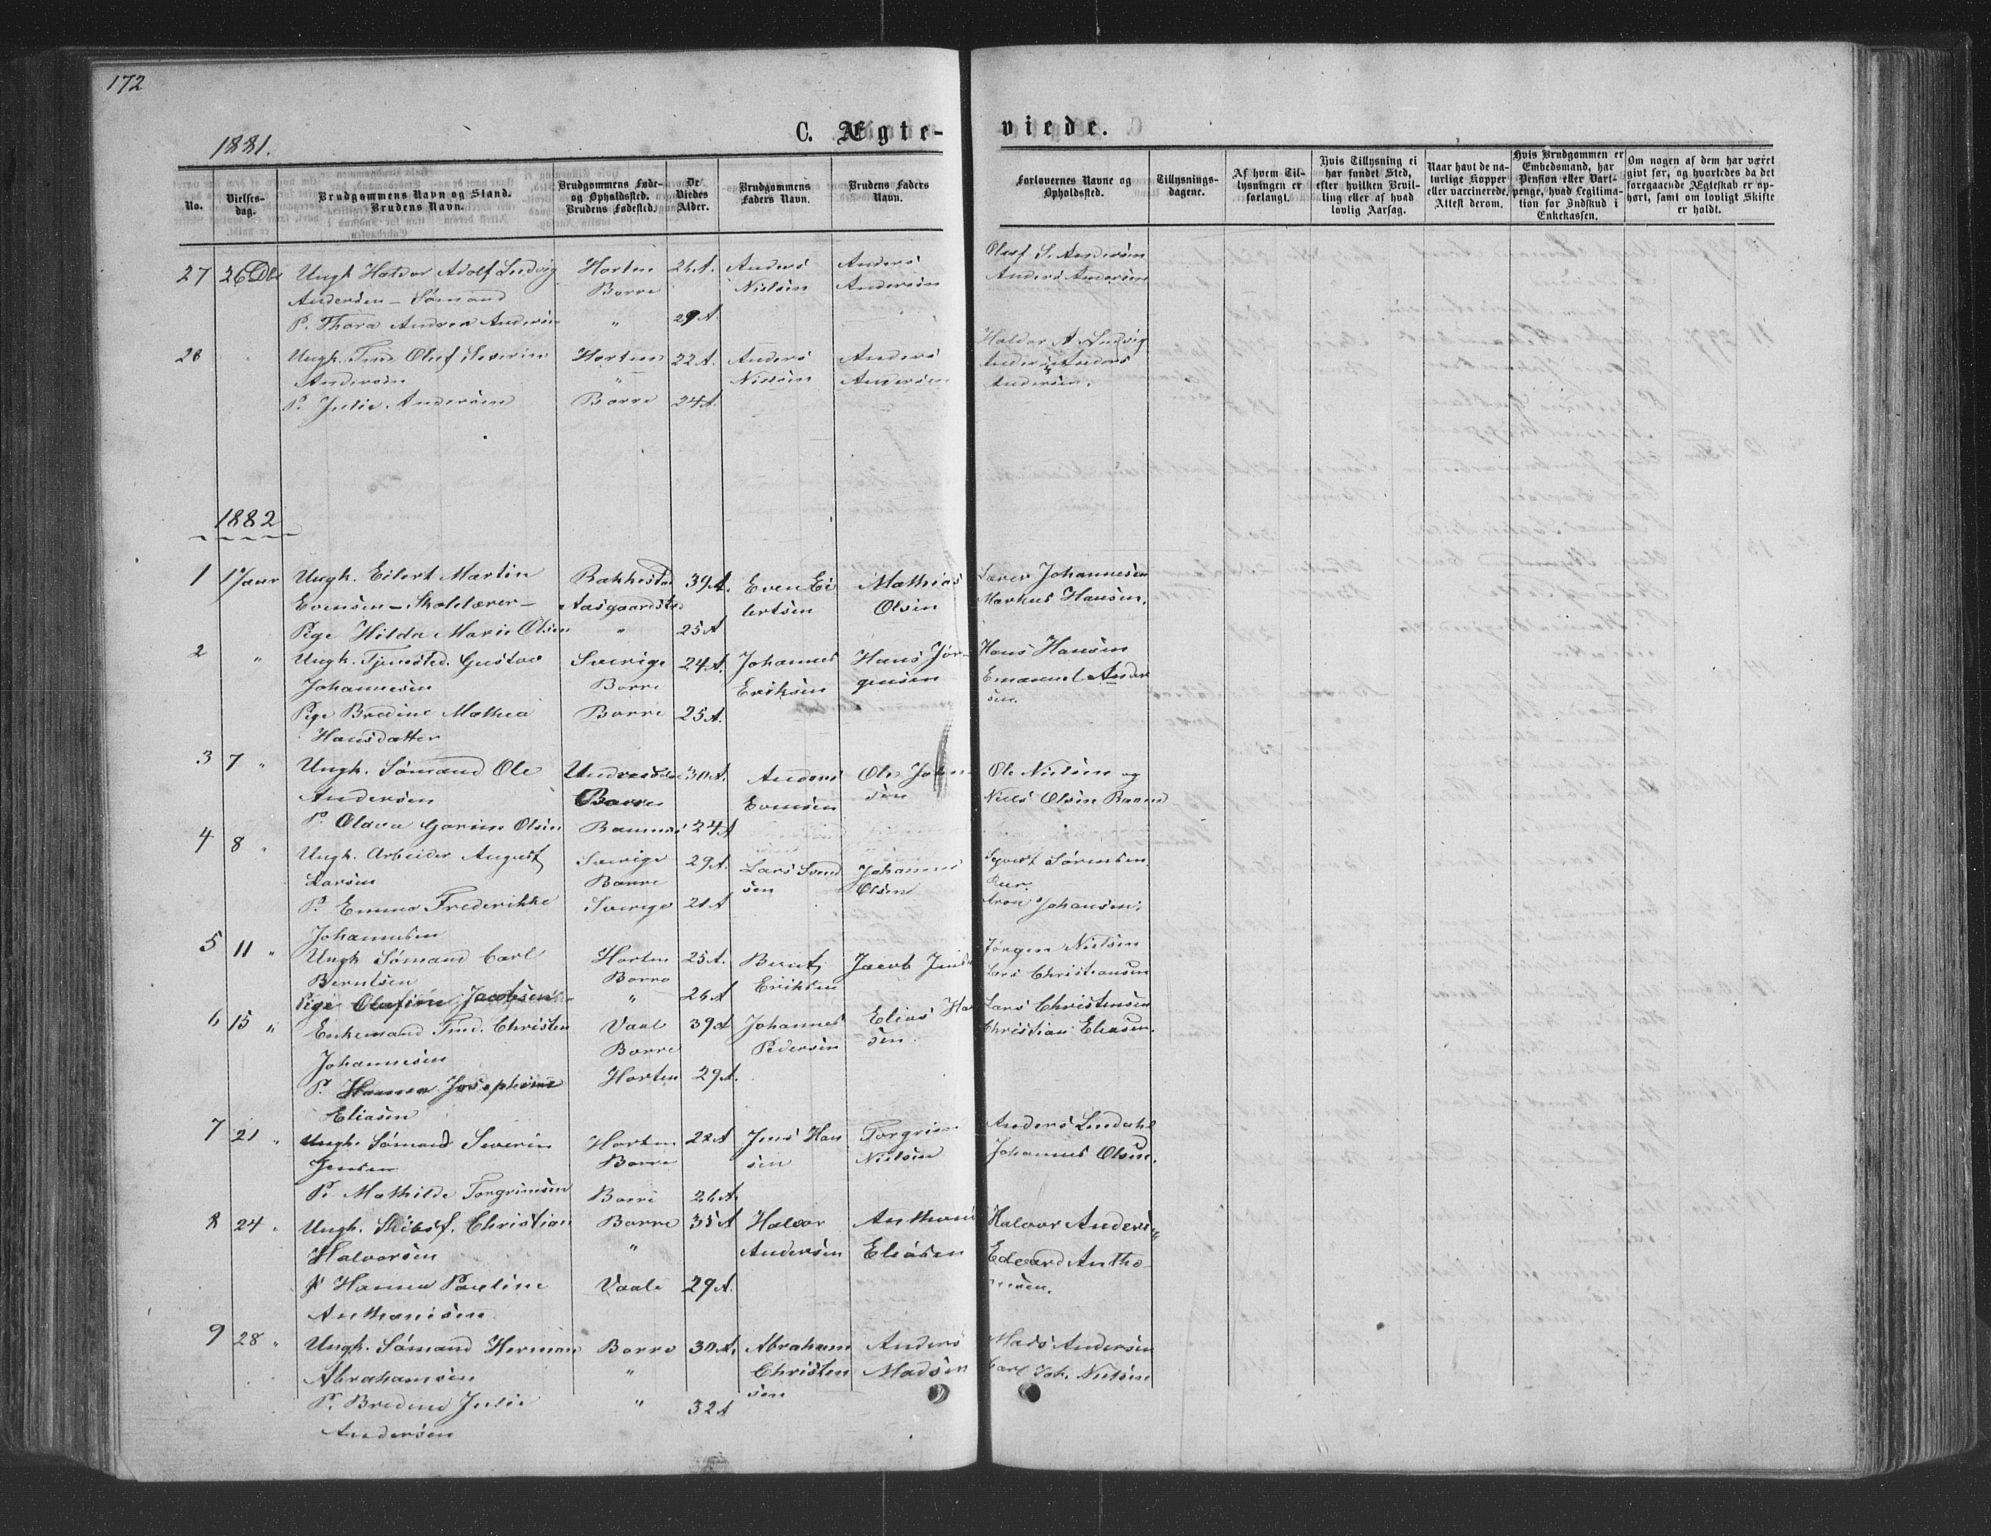 172
1881.
C. Ægte-
viede.
No.
Vielses-
dag.
Brudgommens Navn og Stand.
Brudens Navn.
Brudgommens Føde-
og Opholdssted.
Brudens Fødested.
De
Viedes
Alder.
Brudgommens
Faders Navn.
Brudens Faders
Navn.
Forlovernes Navne og
Opholdssted.
Tillysnings-
dagene.
Af hvem Til-
lysningen er
forlangt.
Hvis Tillysning ei
har fundet Sted,
efter hvilken Bevil-
ling eller af hvad
lovlig Aarsag.
Naar havt de na-
turlige Kopper
eller vaccinerede,
Attest derom.
Hvis Brudgommen er
Embedsmand, har
Pension eller Vart-
penge, hvad Legitima-
tion for Indskud i
Enkekassen.
Om nogen af dem har været
givt før, og hvorledes da det
foregaaende Ægteskab er op-
hørt, samt om lovligt Skifte
er holdt.
27 26 Dbr Ungk. Haldor Adolf Ludvig Horten 26 A. Anders Anders Oluf S. Andersen
Andersen - Sømand Borre Nielsen Andersen Anders Andersen
P. Thora Andrea Andersen " 29 A.
28 " Ungk. Tmd. Oluf Severin Horten 22 A. Anders Anders Haldor A. Ludvig
Andersen " Nielsen Andersen Anders
P. Julie Andersen Borre 24 A. Andersen.
1882
1 1 Jaur Ungk. Eilert Martin Rakkestad 39 A. Even Ei Mathias Johannesen
Evensen - Skolelærer - Aasgaardstr lertsen Olsen Markus Hansen.
Pige Hilda Marie Olsen " 25 A
2 " Ungk. Tjenested. Gustav Sverige 24 A. Johannes Hans Jør- Hans Hansen
Johannesen Borre Eriksen gensen Emanuel Ander
Pige Bredine Mathea Borre 25 A. sen.
Hansdatter
3 7 " Ungk. Sømand Ole 30 A. Anders Ole Johan Ole Nielsen og
Andersen Borre Evensen sen Niels Olsen
P. Olava Olsen 24 A
4 8 " Ungk. Arbeider August Sverige 29 A. Lars Svend Johannes Syvert Sørensen.
Larsen Borre sen Olsen
P. Emma Frederikke Sverige 21 A Aron Johansen.
Johannesen
5 11 " Ungk Sømand Carl Horten 25 A. Bernt Jacob Jens Jørgen Nielsen
Berntsen Borre Eriksen Lars Christiansen
Pige Olafine Jacobsen " 26 A
6 15 " Enkemand Tmd. Christen Vaal 39 A Johannes Elias Han Lars Christensen
Johannesen Borre Pedersen sen. Christian Eliasen.
P. Hanna Josephine Horten 29 A.
Eliasen
7 21 " Ungk. Sømand Severin Horten 22 A Jens Han Torgrim Anders Lindahl
Jensen Borre sen Nielsen Johannes Olsen.
P. Mathilde Torgrimsen Borre 26 A.
8 24 " Ungk. Skibsf. Christian Borre 35 A Halvor Anthoni Halvor Anders
Halvorsen " Andersen Eliasen Edvard Antho
P Hanna Pauline Vaale 29 A. nisen.
Anthonisen
9 28 " Ungk. Sømand Herman Borre 30 A. Abraham Anders Mads Andersen
Abrahamsen " Christen Madsen Carl Joh. Nielsen
P. Bredine Julie " 32 A sen
Andersen